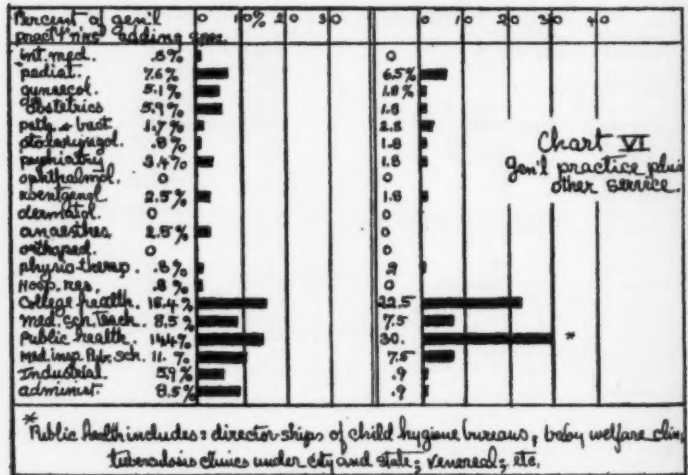 Percent of gen'l 0 10% 20 30 0 10 20 30 40
pract'n'rs adding spec.
int. med. .8% 0
pediat. 7.6% 6.5%
gynaecol. 5.1% 1.8%
obstetrics 5.9% 1.8
path. & bact. 1.7% 2.8
otolaryngol. .8% 1.8
psychiatry 3.4% 1.8
ophthalmol. 0 0
roentgenol. 2.5% 1.8
dermatol. 0 0
anaesthes. 2.5% 0
orthoped. 0 0
physio therap. .8% .9
Hosp. res. .8% 0
College health. 16.4% 22.5
Med. sch. teach. 8.5% 7.5
Public health. 14.4% 30. *
Med insp. Pub. sch. 11. % 7.5
Industrial 5.9% .9
administ. 8.5% .9
Chart VI
Gen'l practice plus
other service.
* Public health includes: director-ships of child hygiene bureaus, baby welfare clin,
tuberculosis clinics under city and state; venereal; etc.